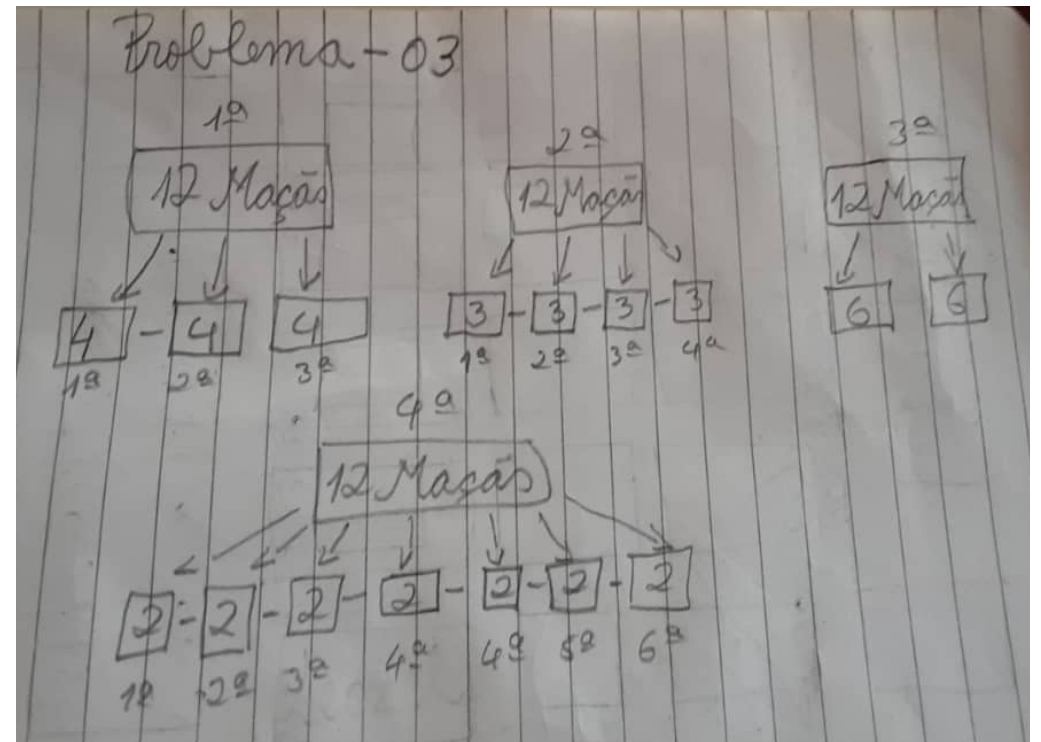 Problema - 03
1ª
12 Maçãs
4 - 4 4
1ª 2ª 3ª
2ª
12 Maçãs
3 - 3 - 3 - 3
1ª 2ª 3ª 4ª
3ª
12 Maçãs
6 6
4ª
12 Maçãs
2 - 2 - 2 - 2 - 2 - 2 - 2
1ª 2ª 3ª 4ª 4ª 5ª 6ª